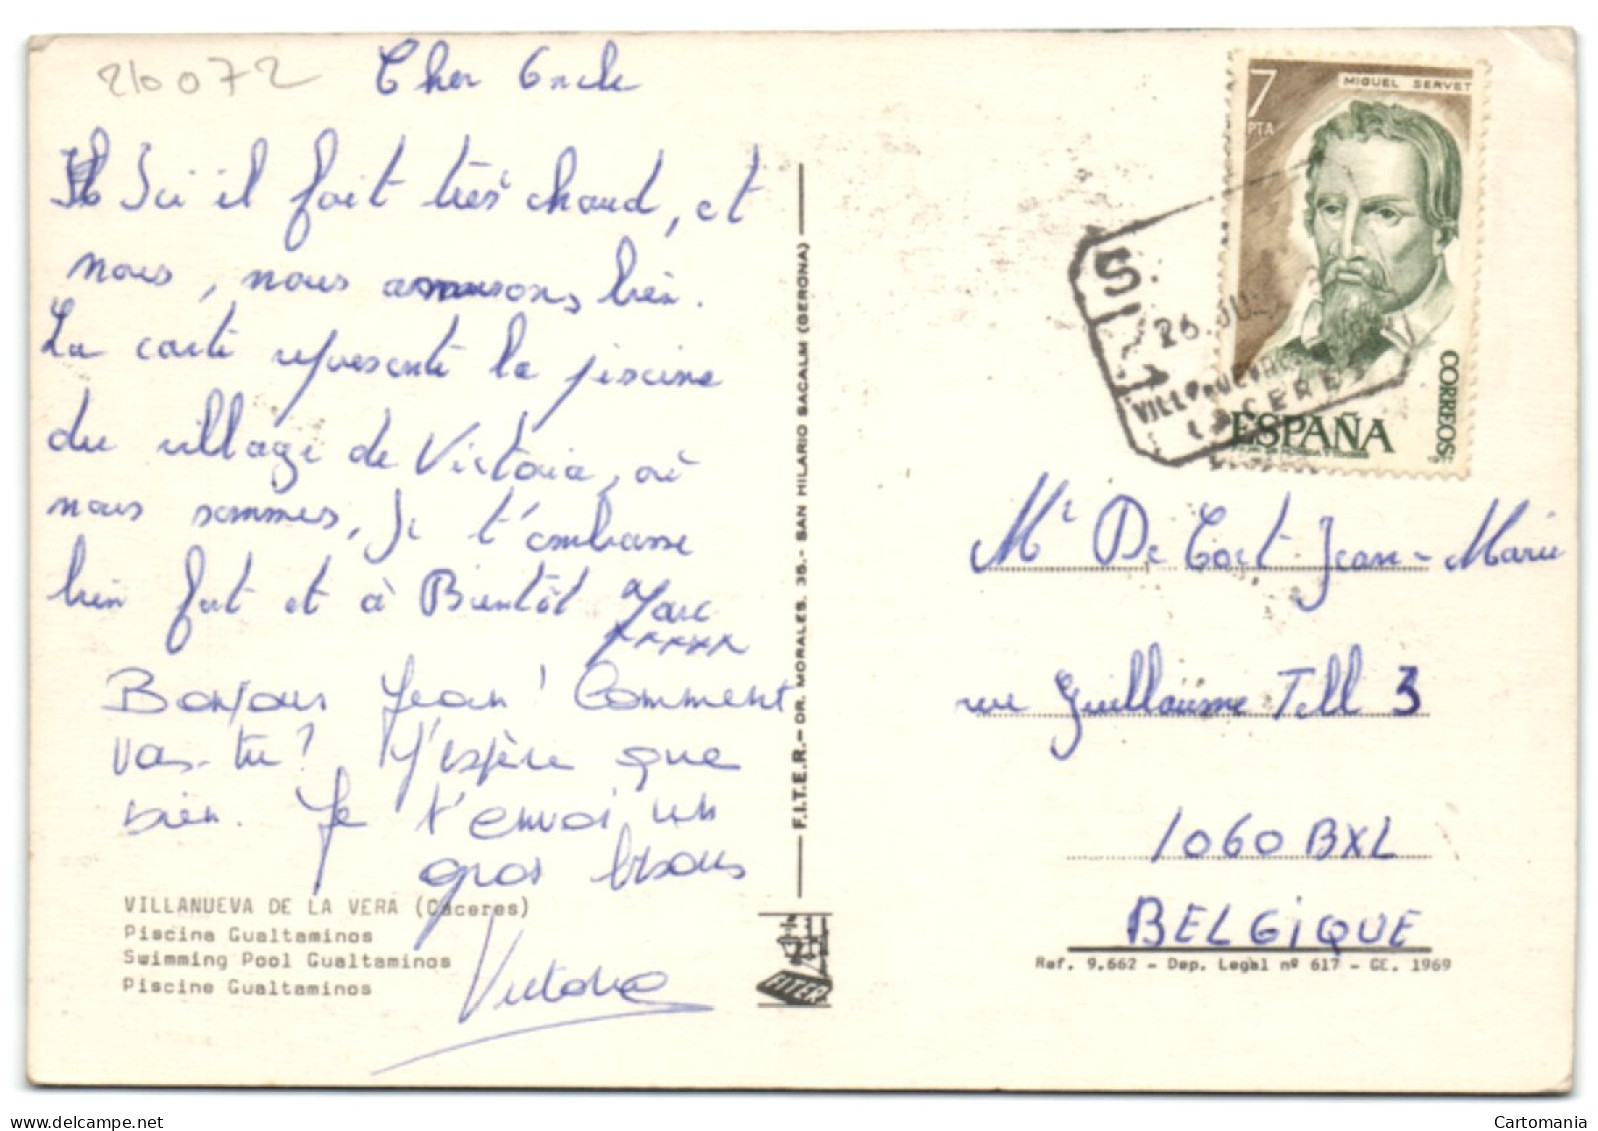 210072
Cher Oncle
Ici il fait très chaud, et
nous, nous amusons bien.
La carte représente la piscine
du village de Victoria, où
nous sommes, je t'embrasse
bien fort et à Bientôt Marc
xxxxx
Bonjour Jean! Comment
vas-tu? J'espère que
bien. Je t'envoi un
gros bisous
Victoria
VILLANUEVA DE LA VERA (Cáceres)
Piscina Gualtaminos
Swimming Pool Gualtaminos
Piscine Gualtaminos
F.I.T.E.R.-DR. MORALES, 35.- SAN HILARIO SACALM (GERONA)
FITER
7
PTA
MIGUEL SERVET
CORREOS
ESPAÑA
26 JUL
CACERES
Mr De Cort Jean-Marie
rue Guillaume Tell 3
1060 BXL
BELGiQUE
Ref. 9.662 - Dep. Legal nº 617 - GE. 1969
Cartomania